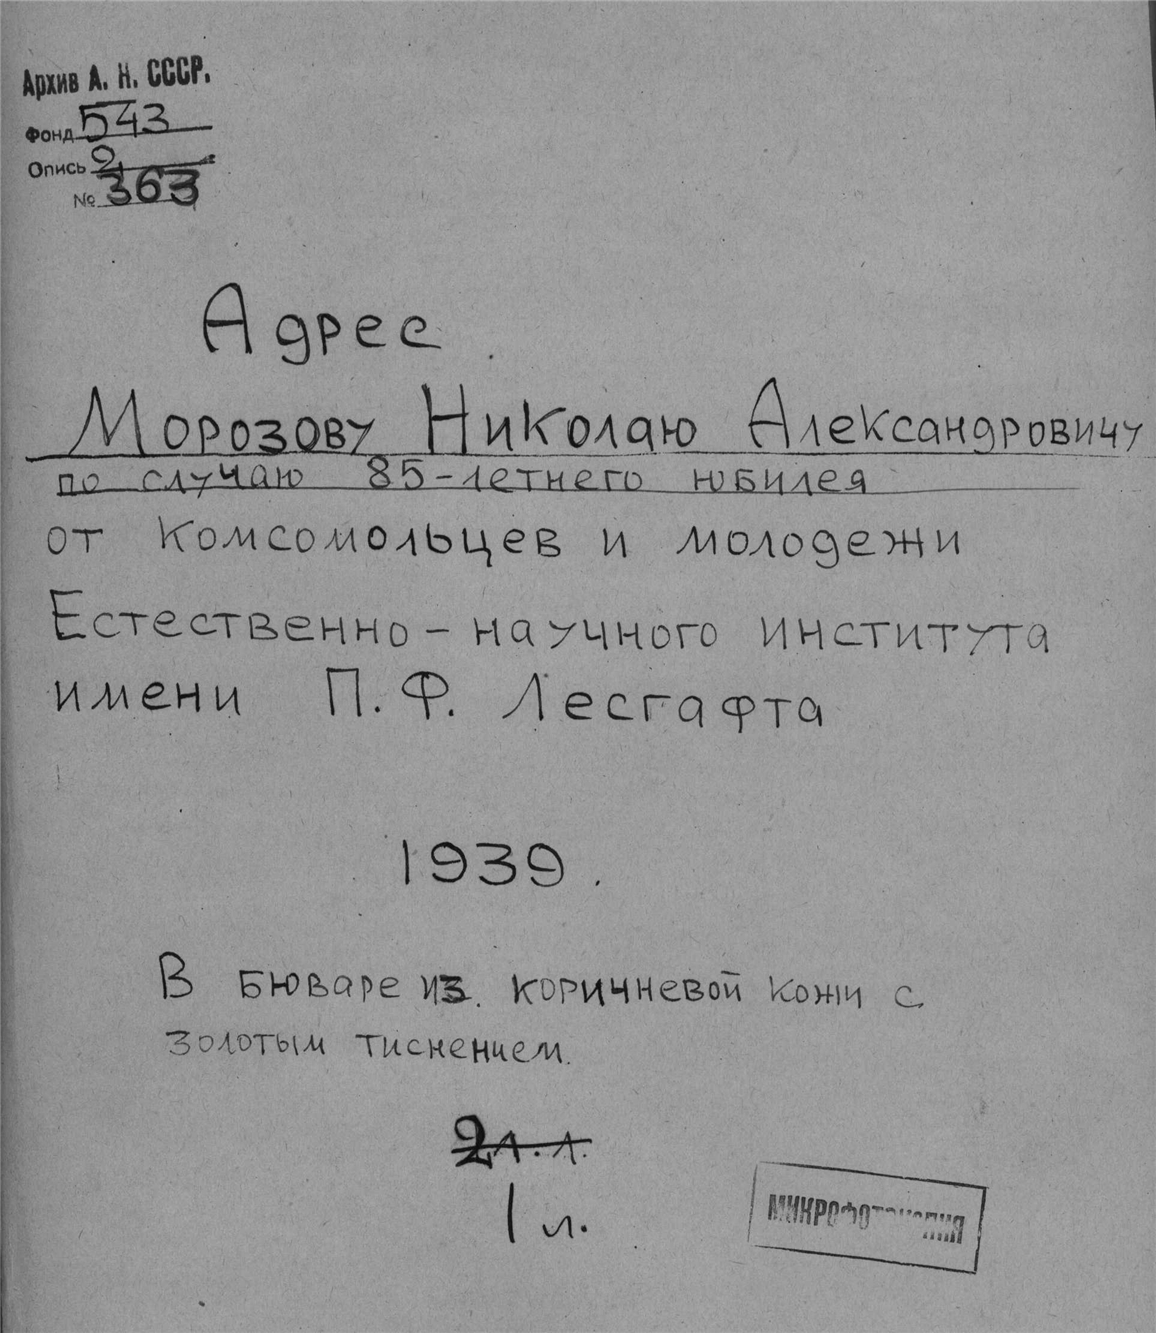 Архив А. Н. СССР.
Фонд 543
Опись 2
№ 363
Адрес
Морозову Николаю Александровичу
по случаю 85-летнего юбилея
от комсомольцев и молодежи
Естественно-научного института
имени П. Ф. Лесгафта
1939.
В бюваре из коричневой кожи с
золотым тиснением.
2 л. л.
1 л.
МИКРОФОТОКОПИЯ